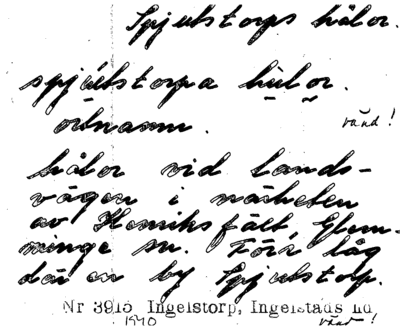 Spjutstorps hålor.
spjútstorpa hùlor.
ortnamn.
vänd!
hålor vid lands-
vägen i närheten
av Henriksfält, Glem-
minge sn. Förr låg
där en by Spjutstorp.
Nr 3913 Ingelstorp, Ingelstads hd,
1940
vänd!